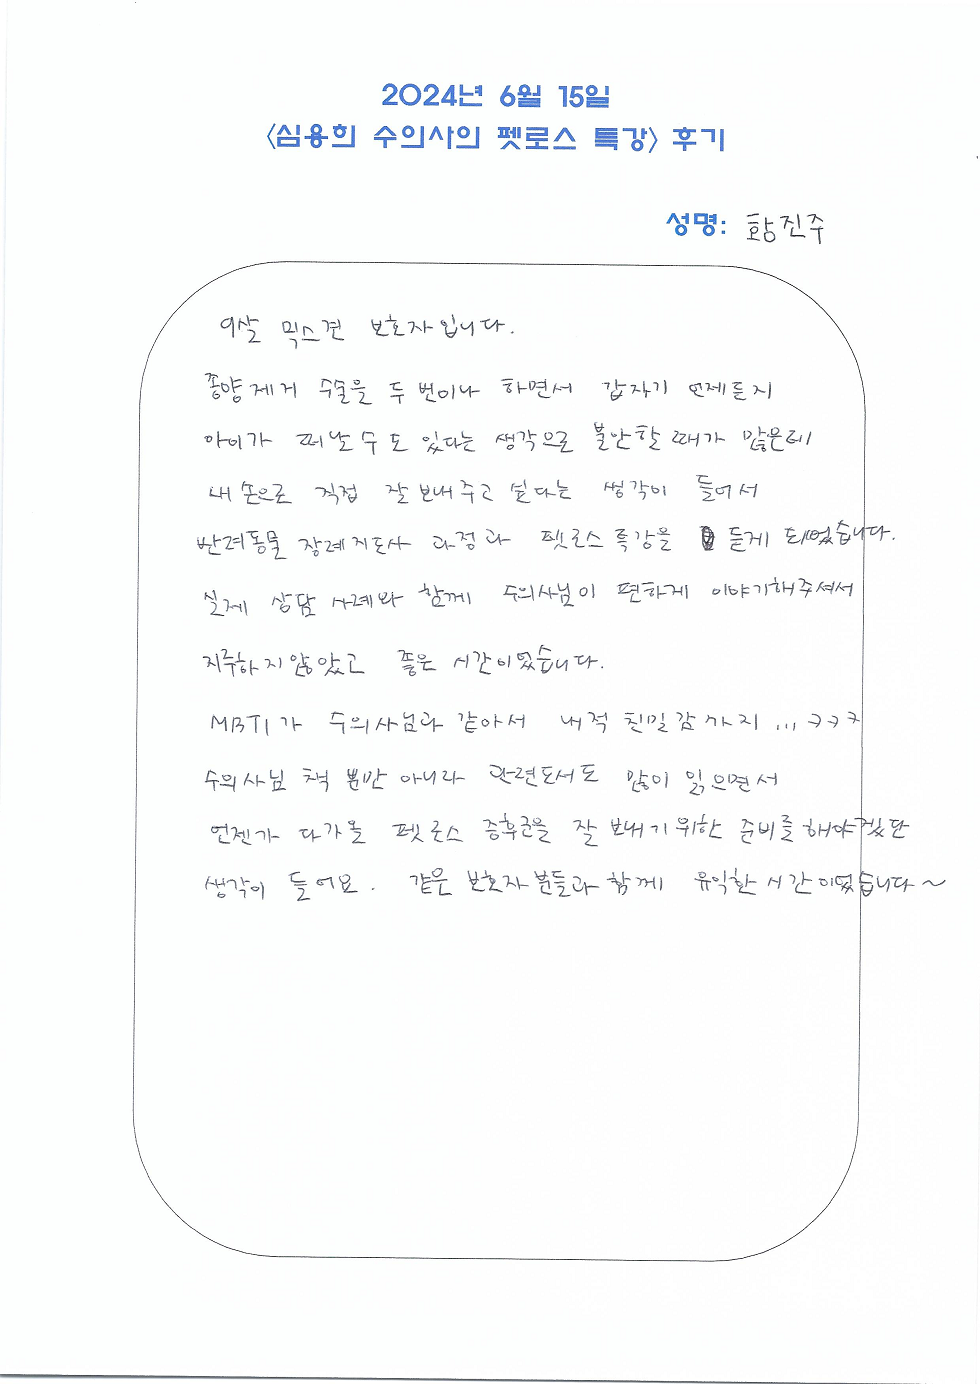 2024년 6월 15일
<심용희 수의사의 펫로스 특강> 후기
성명: 황진주
9살 믹스견 보호자입니다.
종양제거 수술을 두 번이나 하면서 갑자기 언제든지
아이가 떠날 수도 있다는 생각으로 불안할 때가 많은데
내 손으로 직접 잘 보내주고 싶다는 생각이 들어서
반려동물 장례지도사 과정과 펫로스 특강을 듣게 되었습니다.
실제 상담 사례와 함께 수의사님이 편하게 이야기해주셔서
지루하지않았고 좋은 시간이었습니다.
MBTI가 수의사님과 같아서 내적 친밀감까지... ㅋㅋㅋ
수의사님 책 뿐만 아니라 관련도서도 많이 읽으면서
언젠가 다가올 펫로스 증후군을 잘 보내기위한 준비를해야겠단
생각이 들어요. 같은 보호자분들과 함께 유익한 시간이었습니다~